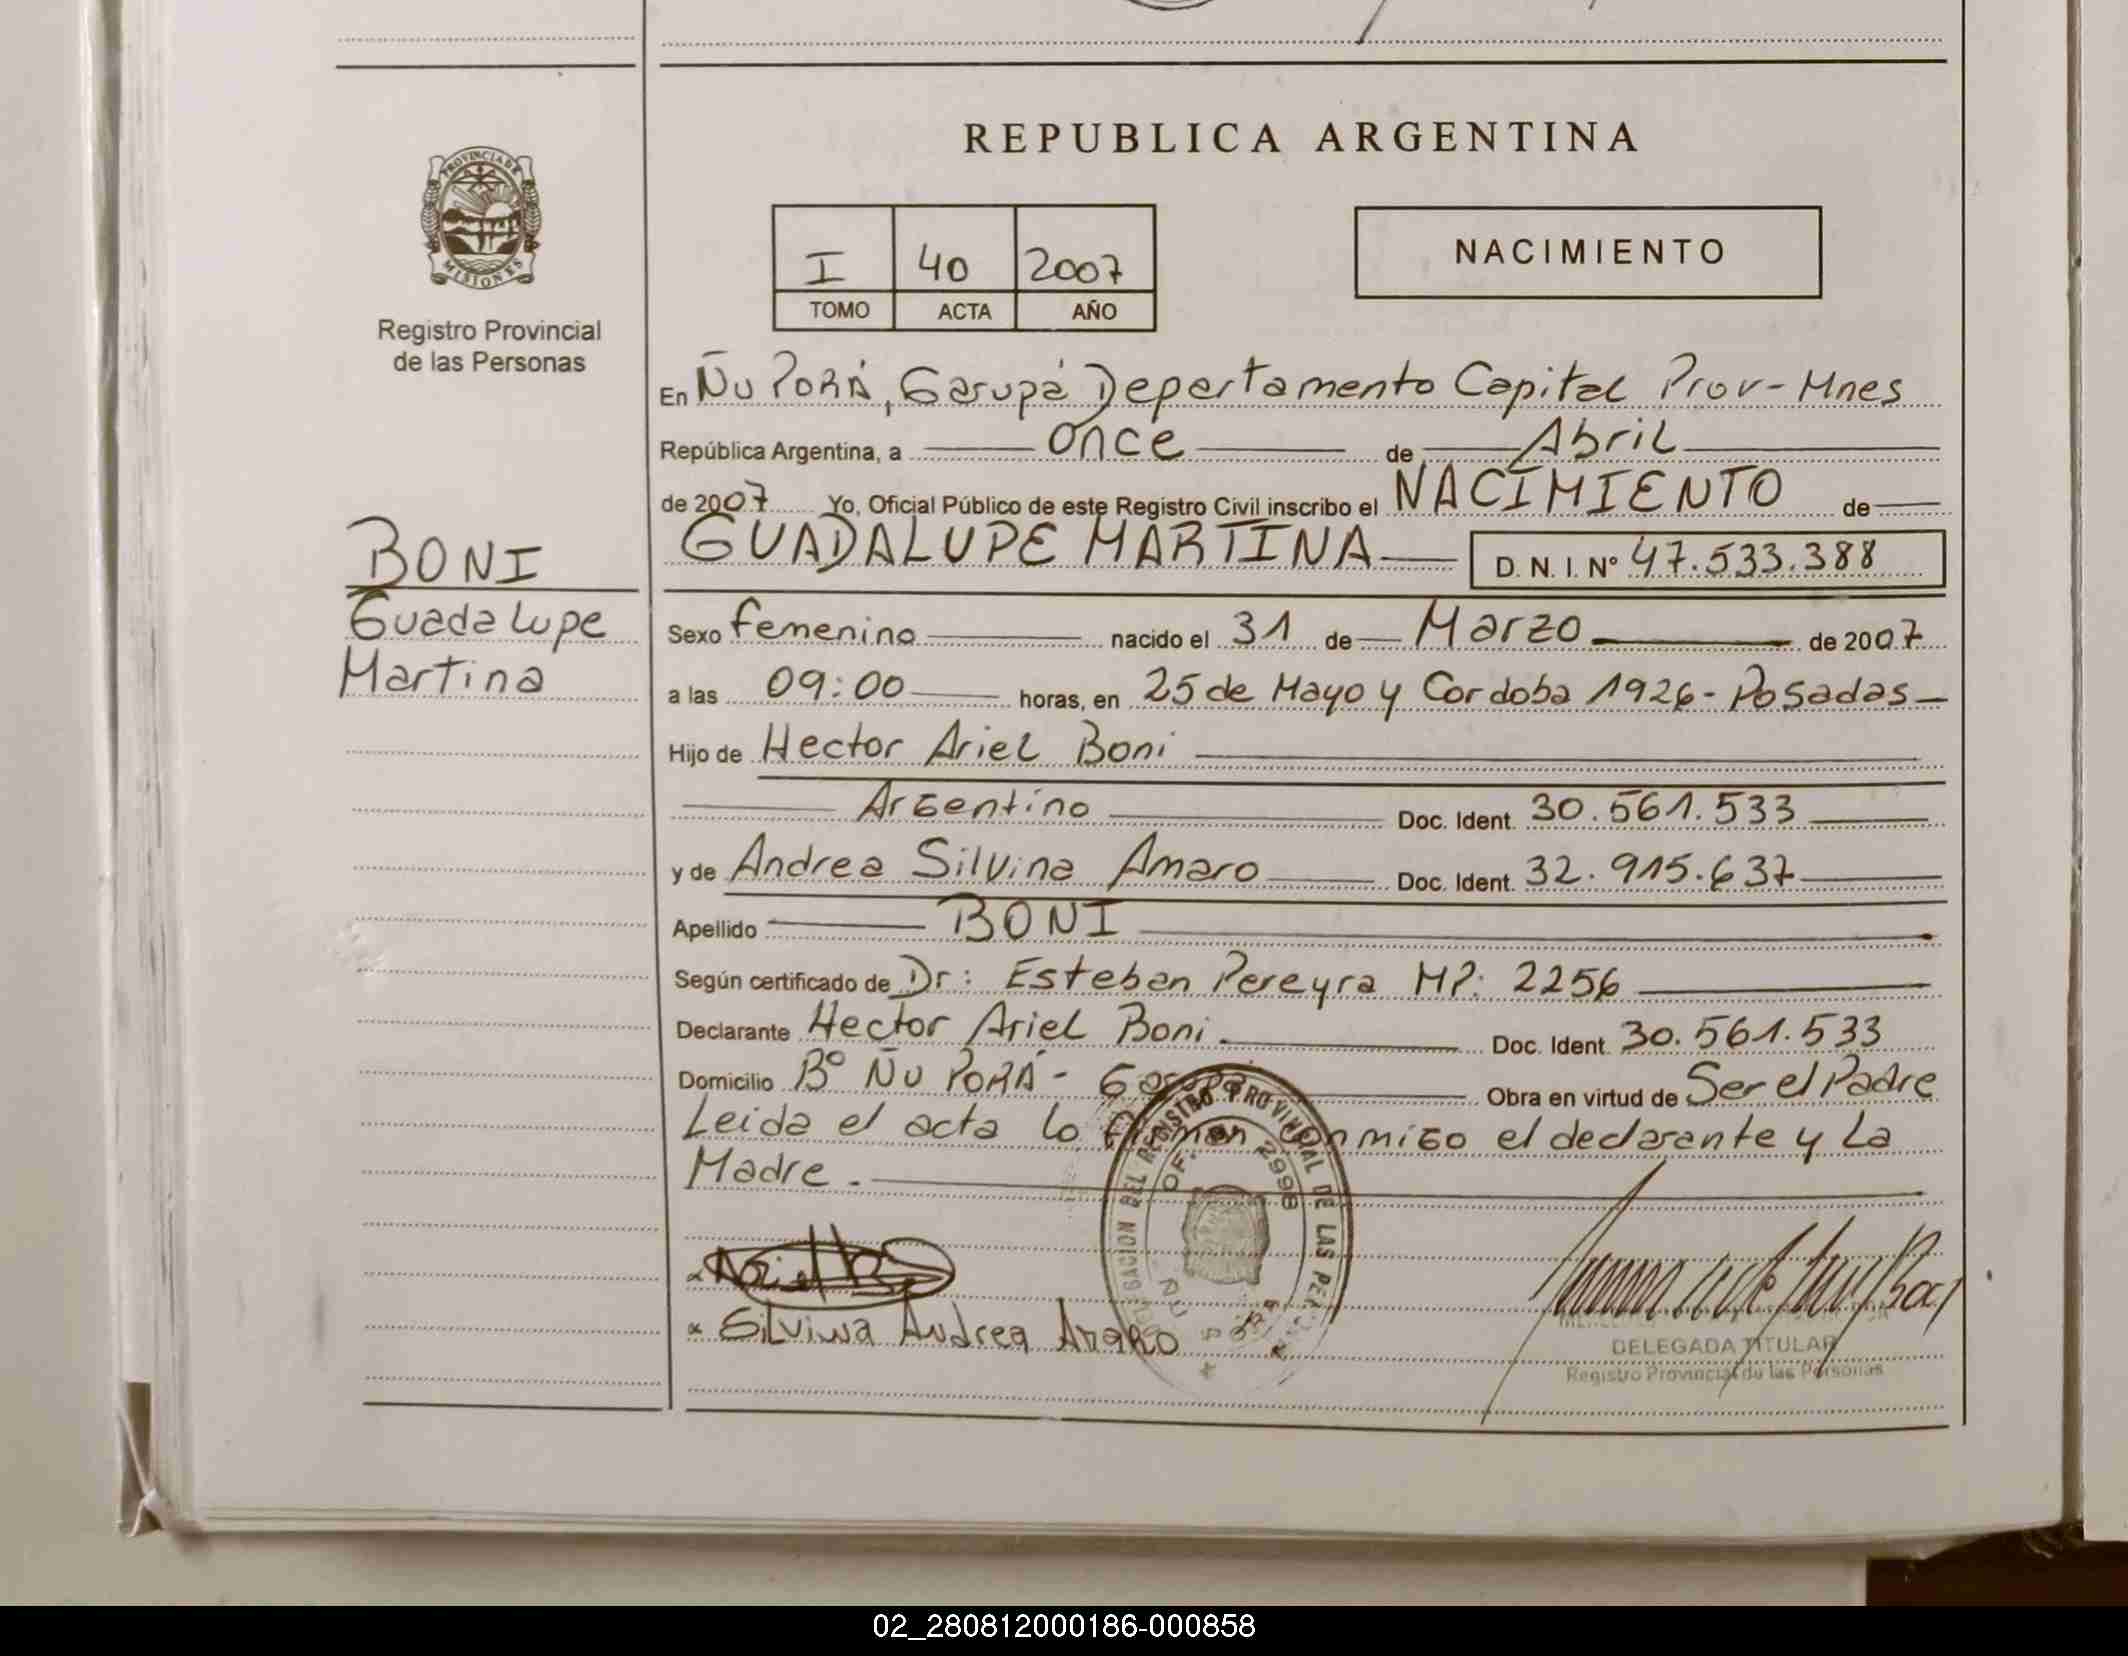 PROVINCIA DE
MISIONES
Registro Provincial
de las Personas
BONI
Guadalupe
Martina
REPUBLICA ARGENTINA
I 40 2007
TOMO ACTA AÑO
NACIMIENTO
En Ñu PORÁ, Garupá Departamento Capital Prov-Mnes
República Argentina, a once de Abril
de 2007 Yo, Oficial Público de este Registro Civil inscribo el NACIMIENTO de
GUADALUPE MARTINA D. N. I. Nº 47.533.388
Sexo Femenino nacido el 31 de Marzo de 2007
a las 09:00 horas, en 25 de Mayo y Cordoba 1926- Posadas-
Hijo de Hector Ariel Boni
Argentino Doc. Ident. 30.561.533
y de Andrea Silvina Amaro Doc. Ident. 32.915.637
Apellido BONI
Según certificado de Dr: Esteban Pereyra MP: 2256
Declarante Hector Ariel Boni Doc. Ident. 30.561.533
Domicilio Bº ÑU PORÁ - Garupá Obra en virtud de Ser el Padre
Leida el acta lo firman conmigo el declarante y La
Madre.
DELEGACION DEL REGISTRO PROVINCIAL DE LAS
OF. 2998
x Silvina Andrea Amaro
DELEGADA TITULAR
Registro Provincial de las Personas
02_280812000186-000858